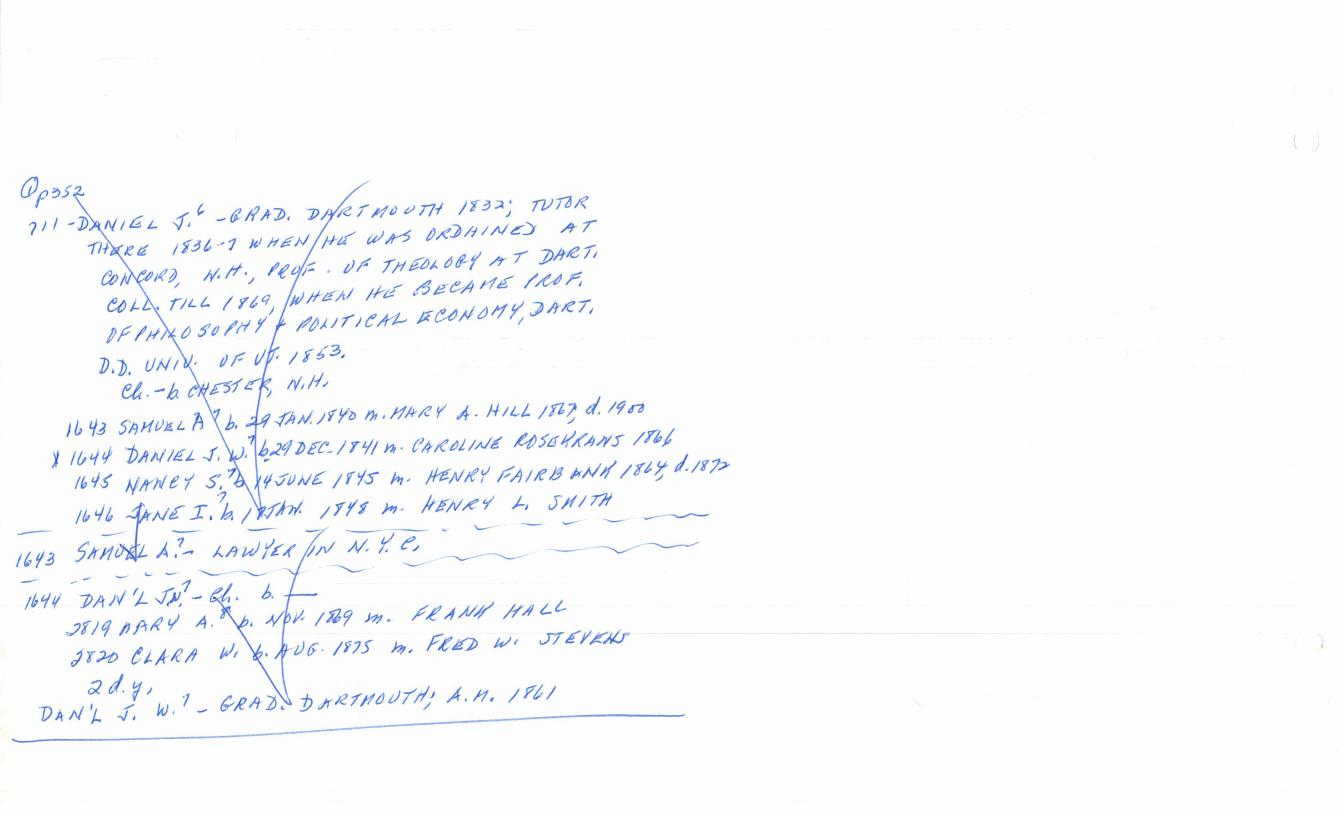 Qp352
711 - DANIEL J.⁶ - GRAD. DARTMOUTH 1832; TUTOR
THERE 1836-7 WHEN HE WAS ORDAINED AT
CONCORD, N.H., PROF. OF THEOLOGY AT DART.
COLL. TILL 1869, WHEN HE BECAME PROF.
OF PHILOSOPHY & POLITICAL ECONOMY, DART.
D.D. UNIV. OF VT. 1853.
Ch. - b. CHESTER, N.H.
1643 SAMUEL A⁷ b. 29 JAN. 1840 m. MARY A. HILL 1867, d. 1900
X 1644 DANIEL J. W.⁷ b. 29 DEC. 1841 m. CAROLINE ROSEKRANS 1866
1645 NANCY S.⁷ b 14 JUNE 1845 m. HENRY FAIRBANK 1864, d. 1872
1646 JANE I.⁷ b. JAN. 1848 m. HENRY L. SMITH
1643 SAMUEL A.⁷ - LAWYER IN N.Y.C.
1644 DAN'L JN.⁷ - Ch. b. —
2819 MARY A.⁸ b. NOV. 1869 m. FRANK HALL
2820 CLARA W. b. AUG. 1875 m. FRED W. STEVENS
2 d.y.
DAN'L J. W.⁷ - GRAD. DARTMOUTH; A.M. 1861